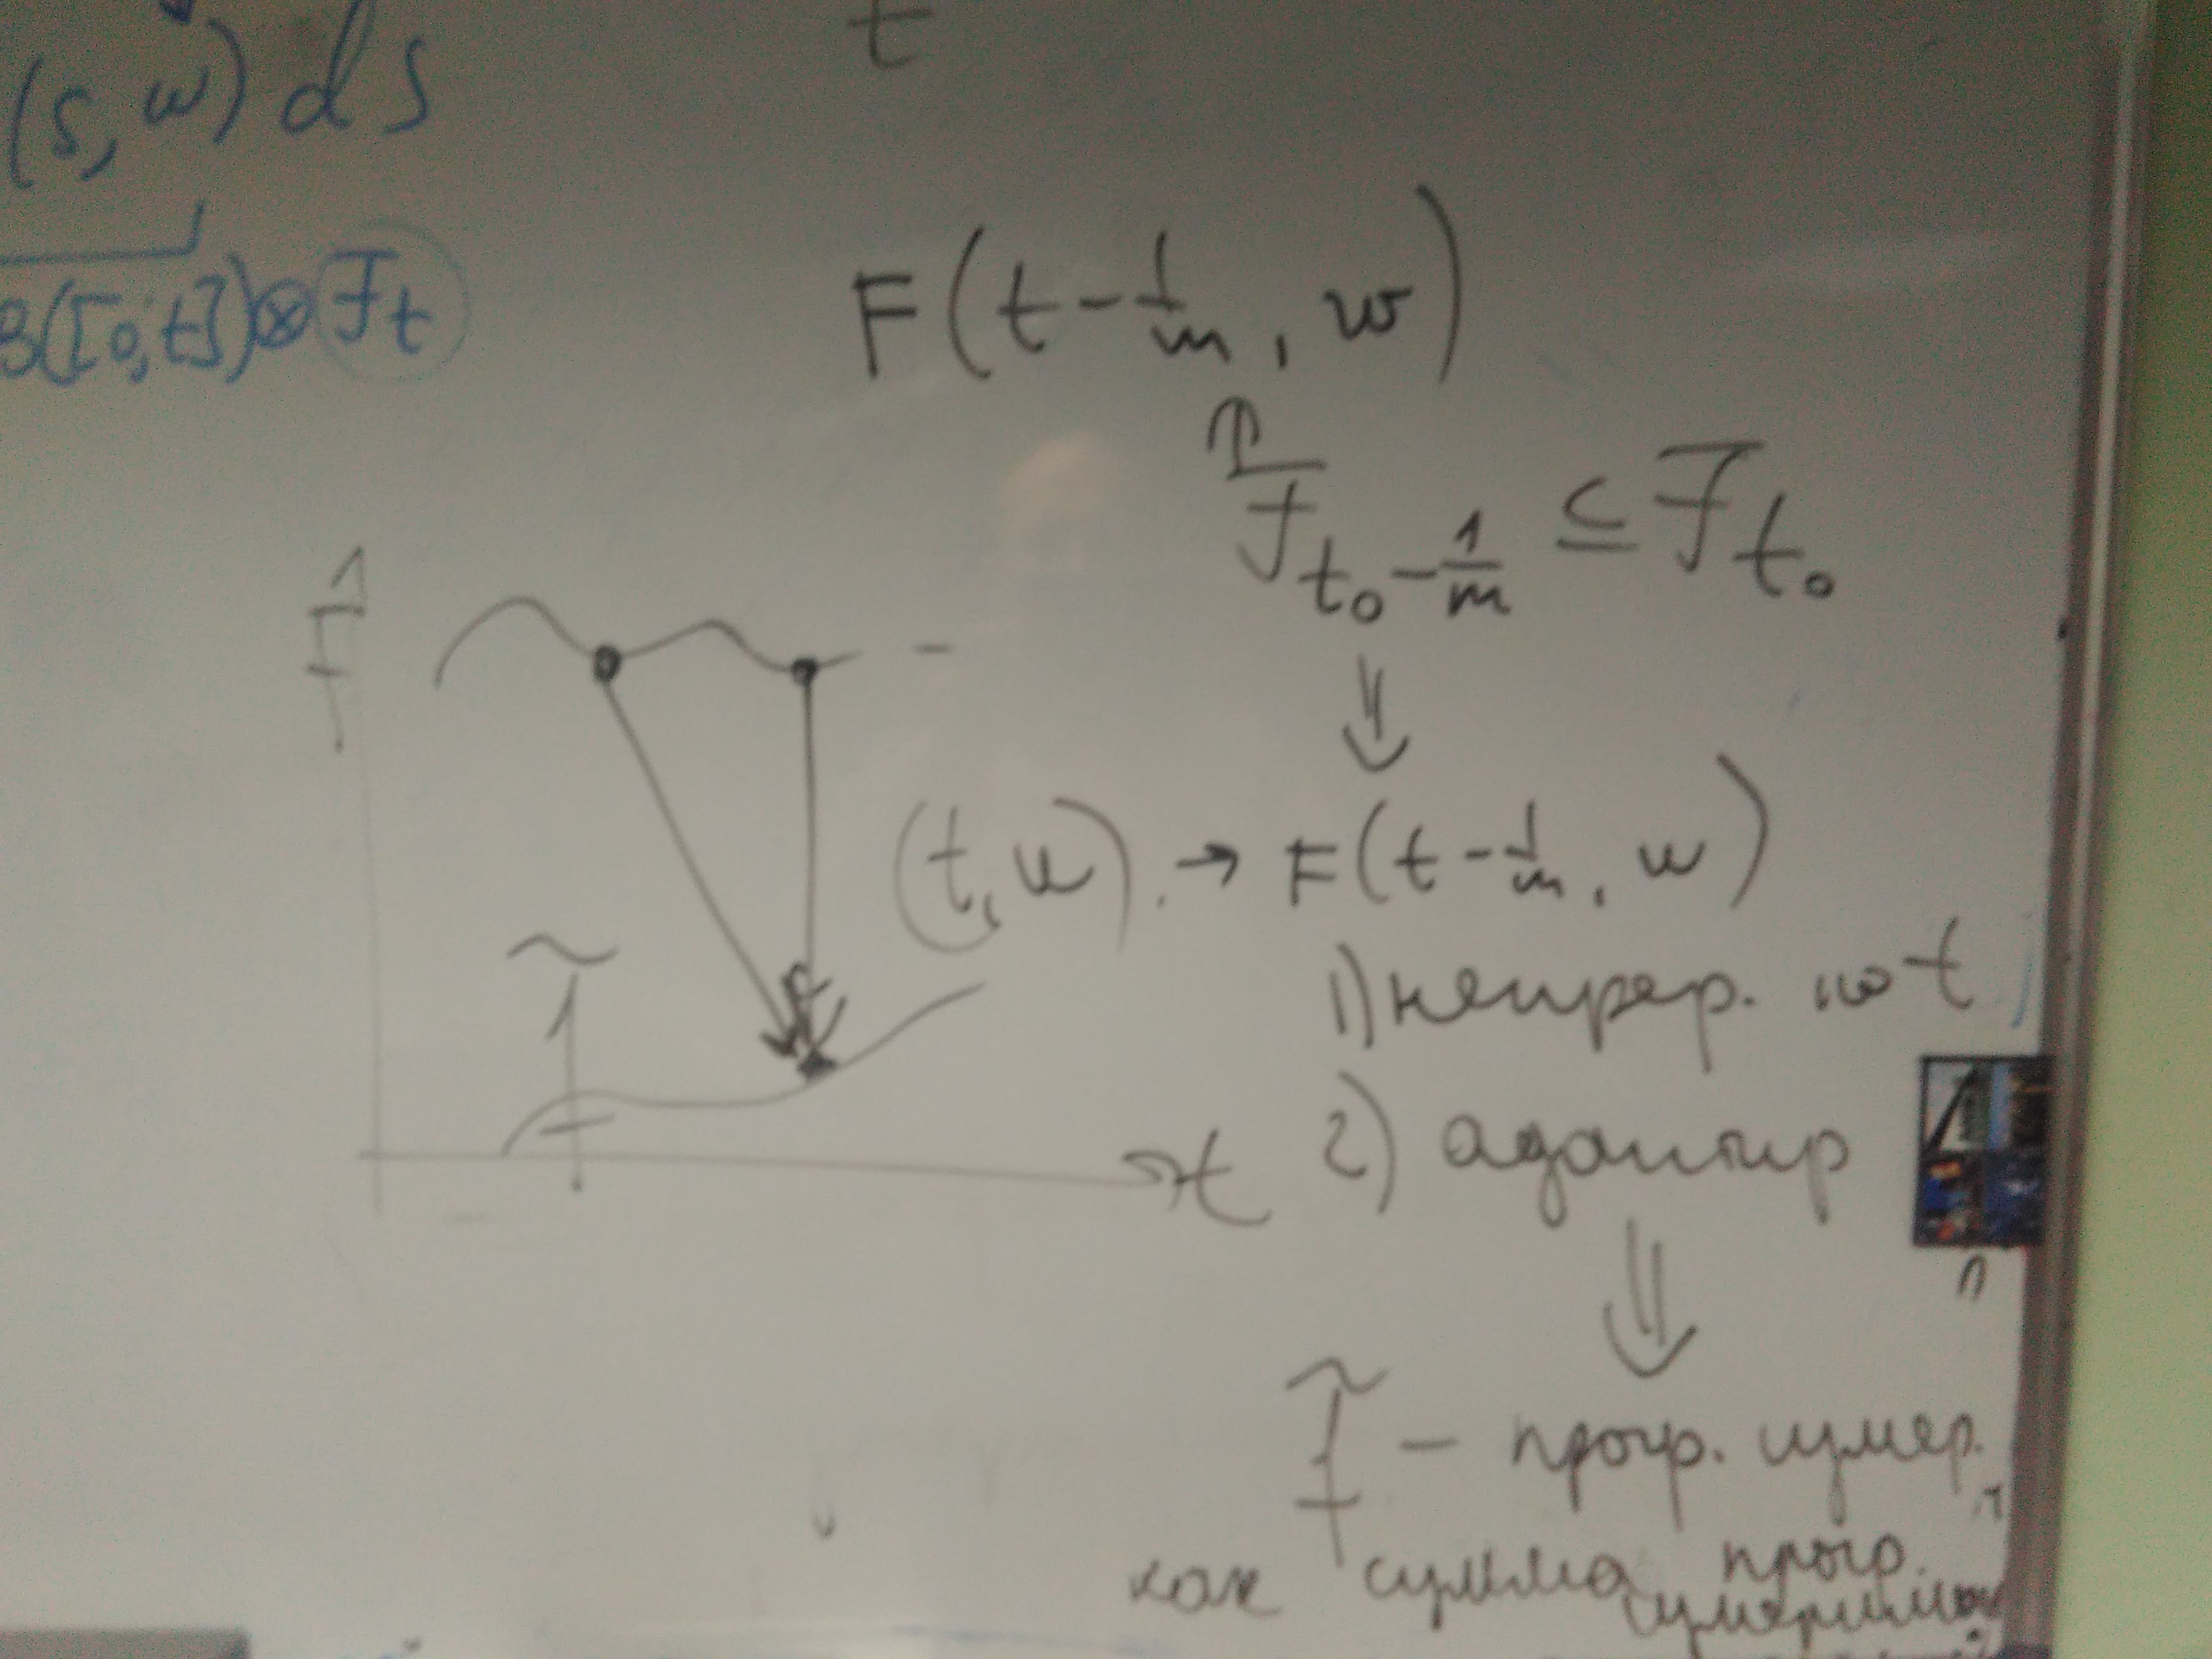 t
(s, w) ds
B([0;t])⊗ℱt
F(t-1/m, w)
ℱt₀-1/m ⊆ ℱt₀
⇓
f
(t, w) → F(t-1/m, w)
1) непрер. по t
f̃
2) адаптир
t
⇓
f̃ - прогр. измер.
как сумма прогр.
измеримых